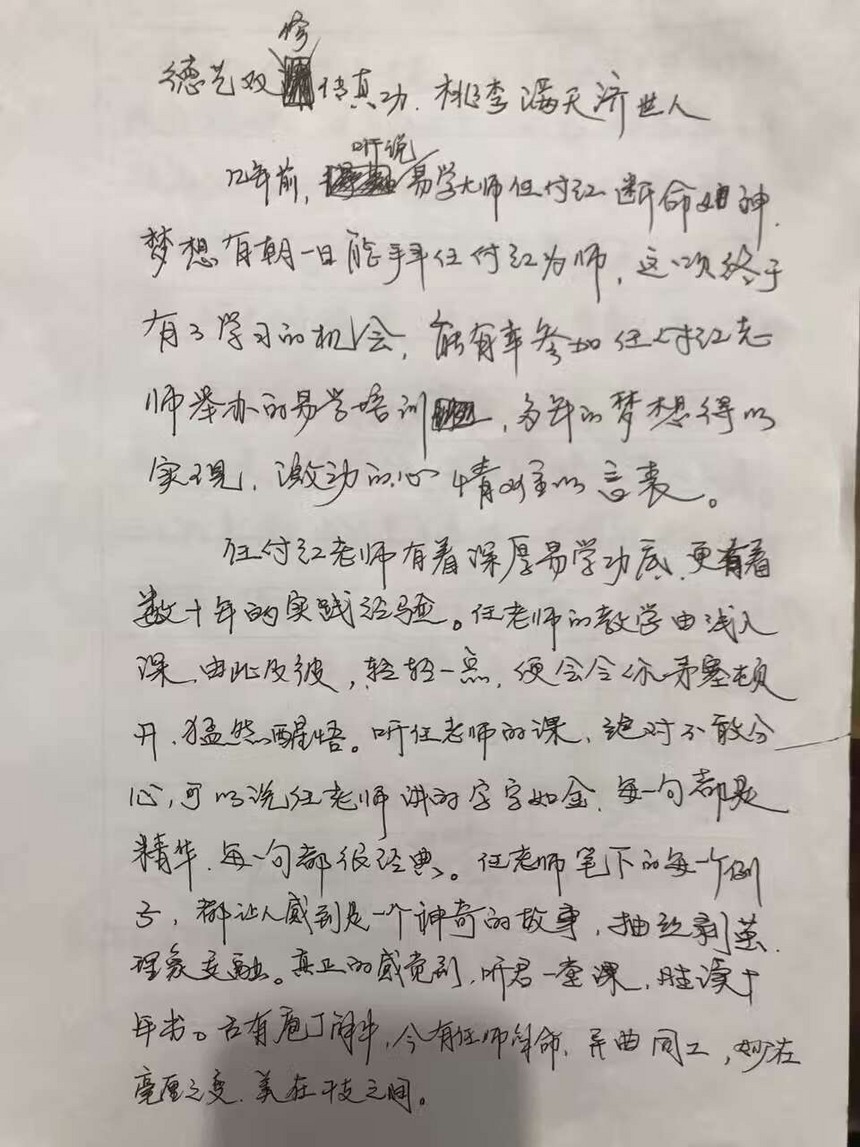 德艺双修传真功.桃李满天济世人
几年前,听说易学大师任付红断命如神.
梦想有朝一日能拜任付红为师,这次终于
有了学习的机会,能有幸参加任付红老
师举办的易学培训,多年的梦想得以
实现,激动的心情难以言表。
任付红老师有着深厚易学功底,更有着
数十年的实践经验。任老师的教学由浅入
深,由此及彼,轻轻一点,便会令你茅塞顿
开、猛然醒悟。听任老师的课,绝对不敢分
心,可以说任老师讲的字字如金,每一句都是
精华.每一句都很经典。任老师笔下的每一个例
子,都让人感到是一个神奇的故事,抽丝剥茧.
理象交融。真正的感觉到,听君一堂课,胜读十
年书。古有庖丁解牛,今有任师解命,异曲同工,妙在
毫厘之变.美在干支之间。